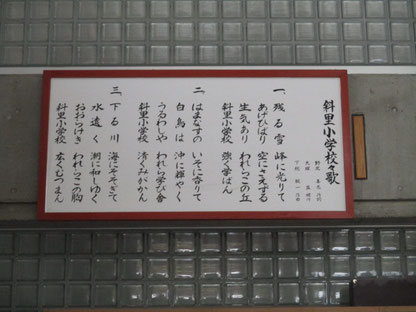 斜里小学校々歌
一、残る雪 峰に光りて
あけひばり 空にさえずる
生気あり われらこの丘
斜里小学校 強く学ばん
二、はまなすの いそに香りて
白鳥は 沖に輝やく
うるわしや われら学び舎
斜里小学校 清くみがかん
三、下る川 海にそそぎて
水遠く 潮に和しゆく
おおらけき われらこの胸
斜里小学校 広くむつまん